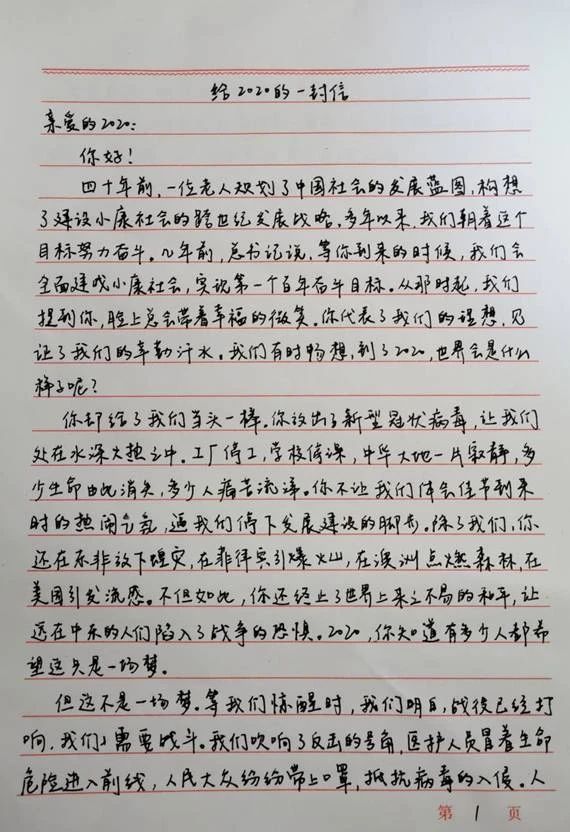 给2020的一封信
亲爱的2020:
你好!
四十年前,一位老人规划了中国社会的发展蓝图,构想
了建设小康社会的跨世纪发展战略。多年以来,我们朝着这个
目标努力奋斗。几年前,总书记说,等你到来的时候,我们会
全面建成小康社会,实现第一个百年奋斗目标。从那时起,我们
提到你,脸上总会带着幸福的微笑。你代表了我们的理想,见
证了我们的辛勤汗水。我们有时畅想,到了2020,世界会是什么
样子呢?
你却给了我们当头一棒。你放出了新型冠状病毒,让我们
处在水深火热之中。工厂停工,学校停课,中华大地一片寂静,多
少生命由此消失,多少人痛苦流涕。你不让我们体会佳节到来
时的热闹气氛,逼我们停下发展建设的脚步。除了我们,你
还在东非放下蝗灾,在菲律宾引爆火山,在澳洲点燃森林,在
美国引发流感。不但如此,你还终止了世界上来之不易的和平,让
远在中东的人们陷入了战争的恐惧。2020,你知道有多少人都希
望这只是一场梦。
但这不是一场梦。等我们惊醒时,我们明白,战役已经打
响,我们需要战斗。我们吹响了反击的号角,医护人员冒着生命
危险进入前线,人民大众纷纷带上口罩,抵抗病毒的入侵。人
第 1 页